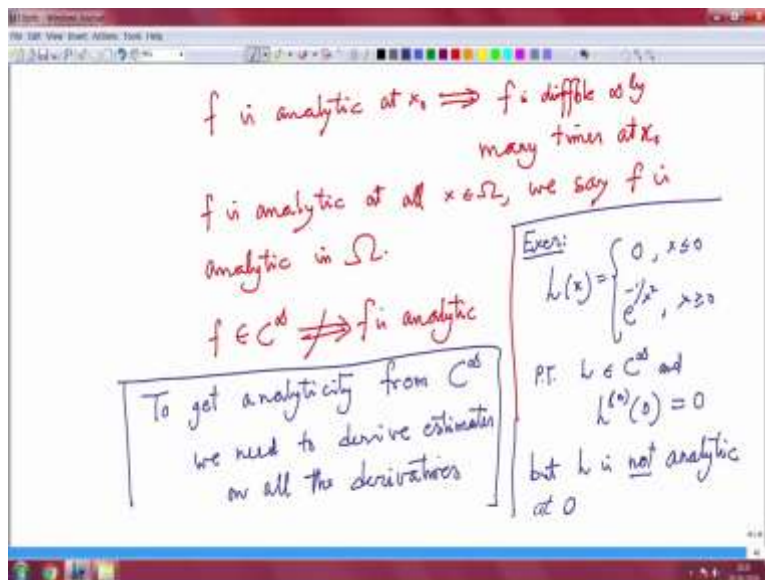 File Edit View Insert Actions Tools Help
f is analytic at x₀ ⟹ f is diffble ∞ly
many times at x₀
f is analytic at all x ∈ Ω, we say f is
analytic in Ω.
f ∈ C^∞ ⇏ f is analytic
To get analyticity from C^∞
we need to derive estimates
on all the derivatives
Exer:
h(x) = { 0 , x ≤ 0
e^{-1/x²} , x ≥ 0
P.T. h ∈ C^∞ and
h^{(n)}(0) = 0
but h is not analytic
at 0